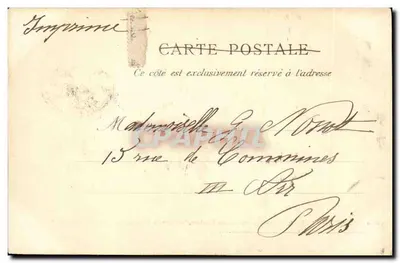 Imprimé
CARTE POSTALE
Ce côté est exclusivement réservé à l'adresse
Mademoiselle G.
15 rue de Commines
III Arr
Paris